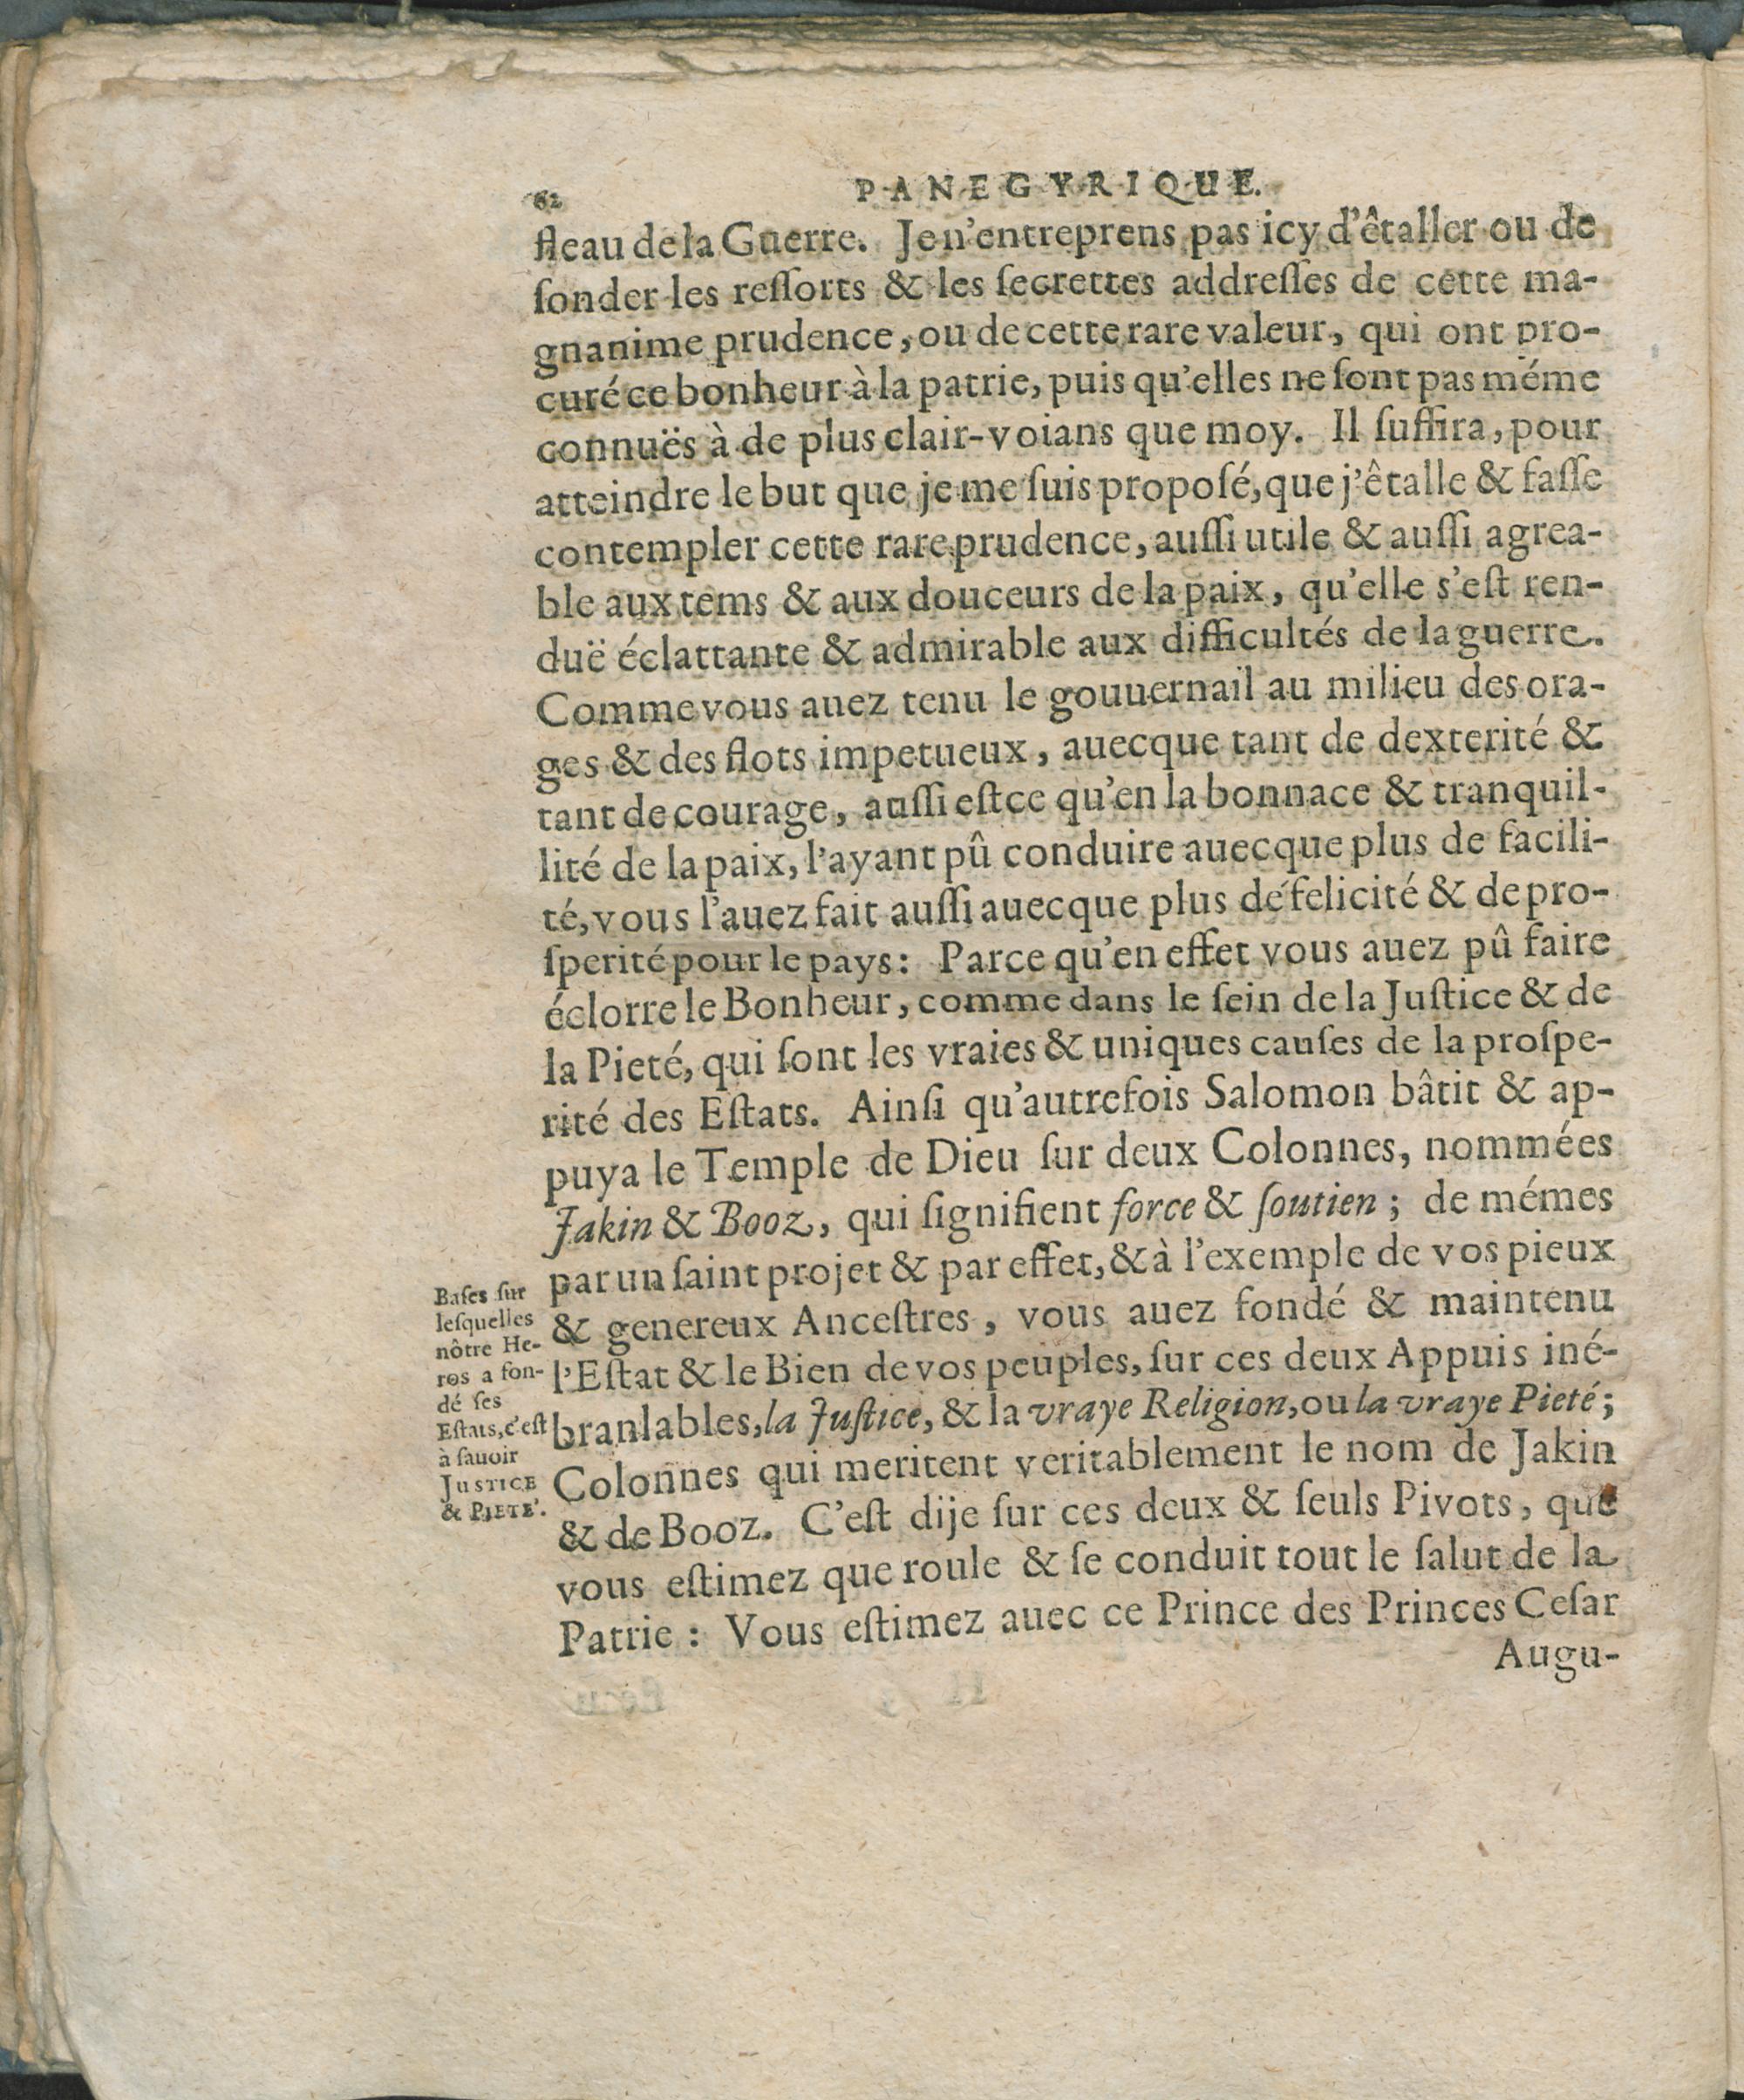 62 PANEGYRIQUE.
fleau de la Guerre. Je n'entreprens pas icy d'êtaller ou de
ſonder les reſſorts & les ſecrettes addreſſes de cette ma-
gnanime prudence, ou de cette rare valeur, qui ont pro-
curé ce bonheur à la patrie, puis qu'elles ne ſont pas méme
connuës à de plus clair-voians que moy. Il ſuffira, pour
atteindre le but que je me ſuis propoſé, que j'êtalle & faſſe
contempler cette rare prudence, auſſi utile & auſſi agrea-
ble aux tems & aux douceurs de la paix, qu'elle s'eſt ren-
duë éclattante & admirable aux difficultés de la guerre.
Comme vous auez tenu le gouuernail au milieu des ora-
ges & des flots impetueux, auecque tant de dexterité &
tant de courage, auſſi eſtce qu'en la bonnace & tranquil-
lité de la paix, l'ayant pû conduire auecque plus de facili-
té, vous l'auez fait auſſi auecque plus dé felicité & de pro-
ſperité pour le pays: Parce qu'en effet vous auez pû faire
éclorre le Bonheur, comme dans le ſein de la Juſtice & de
la Pieté, qui ſont les vraies & uniques cauſes de la proſpe-
rité des Eſtats. Ainſi qu'autrefois Salomon bâtit & ap-
puya le Temple de Dieu ſur deux Colonnes, nommées
Jakin & Booz, qui ſignifient force & ſoutien; de mémes
par un ſaint projet & par effet, & à l'exemple de vos pieux
& genereux Anceſtres, vous auez fondé & maintenu
l'Eſtat & le Bien de vos peuples, ſur ces deux Appuis iné-
branlables, la Juſtice, & la vraye Religion, ou la vraye Pieté;
Colonnes qui meritent veritablement le nom de Jakin
& de Booz. C'eſt dije ſur ces deux & ſeuls Pivots, que
vous eſtimez que roule & ſe conduit tout le ſalut de la
Patrie: Vous eſtimez auec ce Prince des Princes Ceſar
Augu-
Baſes ſur
leſquelles
nôtre He-
ros a fon-
dé ſes
Eſtats, c'eſt
à ſauoir
JUSTICE
& PIETE'.